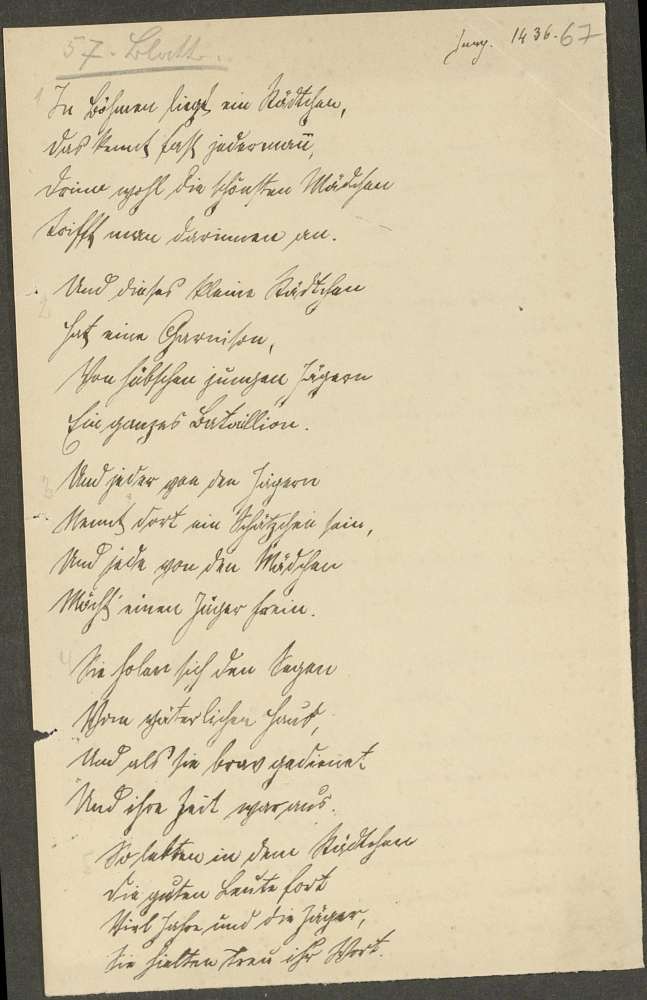 57. Blatt.
Jung. 1436. 67
1 In Böhmen liegt ein Städtchen,
das kennt fast jedermañ,
drinn wohl die schönsten Mädchen
trifft man darinnen an.
2 Und dieses kleine Städtchen
hat eine Garnison,
Von hübschen jungen Jägern
Ein ganzes Bataillion.
3 Und jeder von den Jägern
Nennt dort ein Schätzchen sein,
Und jede von den Mädchen
Möcht' einen Jäger frein.
4 Sie holen sich den Segen
Vom väterlichen Haus,
Und als sie brav gedienet
Und ihre Zeit war aus.
So lebten in dem Städtchen
die guten Leute fort
Viel Jahre und die Jäger,
sie hielten treu ihr Wort.